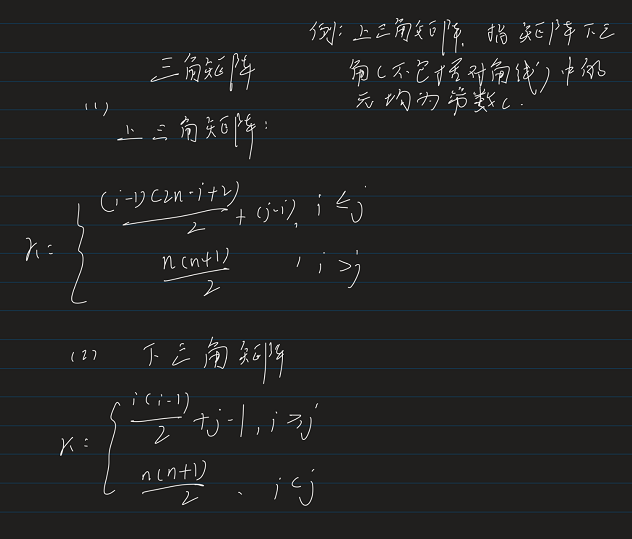 例:上三角矩阵,指矩阵下三
角(不包括对角线)中的
元均为常数c.
三角矩阵
(1)
上三角矩阵:
k= { (i-1)(2n-i+2)/2 + (j-i), i≤j
n(n+1)/2 , i>j
(2) 下三角矩阵
k= { i(i-1)/2 +j-1, i≥j
n(n+1)/2 、 i<j